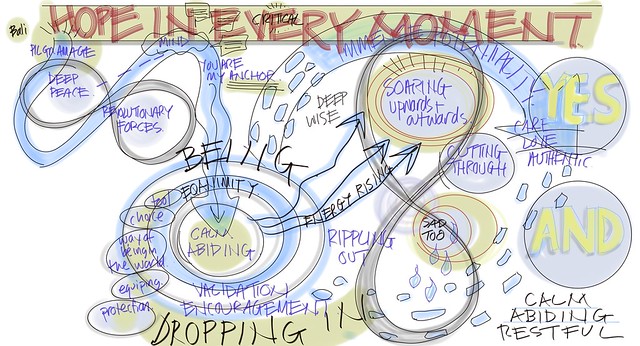 HOPE IN EVERY MOMENT
Bali
PILGRIMAGE
MIND
CRITICAL
IMMENSE POTENTIALITY
DEEP
PEACE
REVOLUTIONARY
FORCES.
YOU ARE
MY ANCHOR
DEEP
WISE
SOARING
upwards +
outwards
YES
CARE
LOVE
AUTHENTIC
CUTTING
THROUGH
BEING
EQUIMITY
CALM
ABIDING
ENERGY RISING
RIPPLING
OUT
SAD
TOO
AND
tool
choice
way of
being in
the world
equiping
protection
VALIDATION
ENCOURAGEMENT
DROPPING IN
CALM
ABIDING
RESTFUL